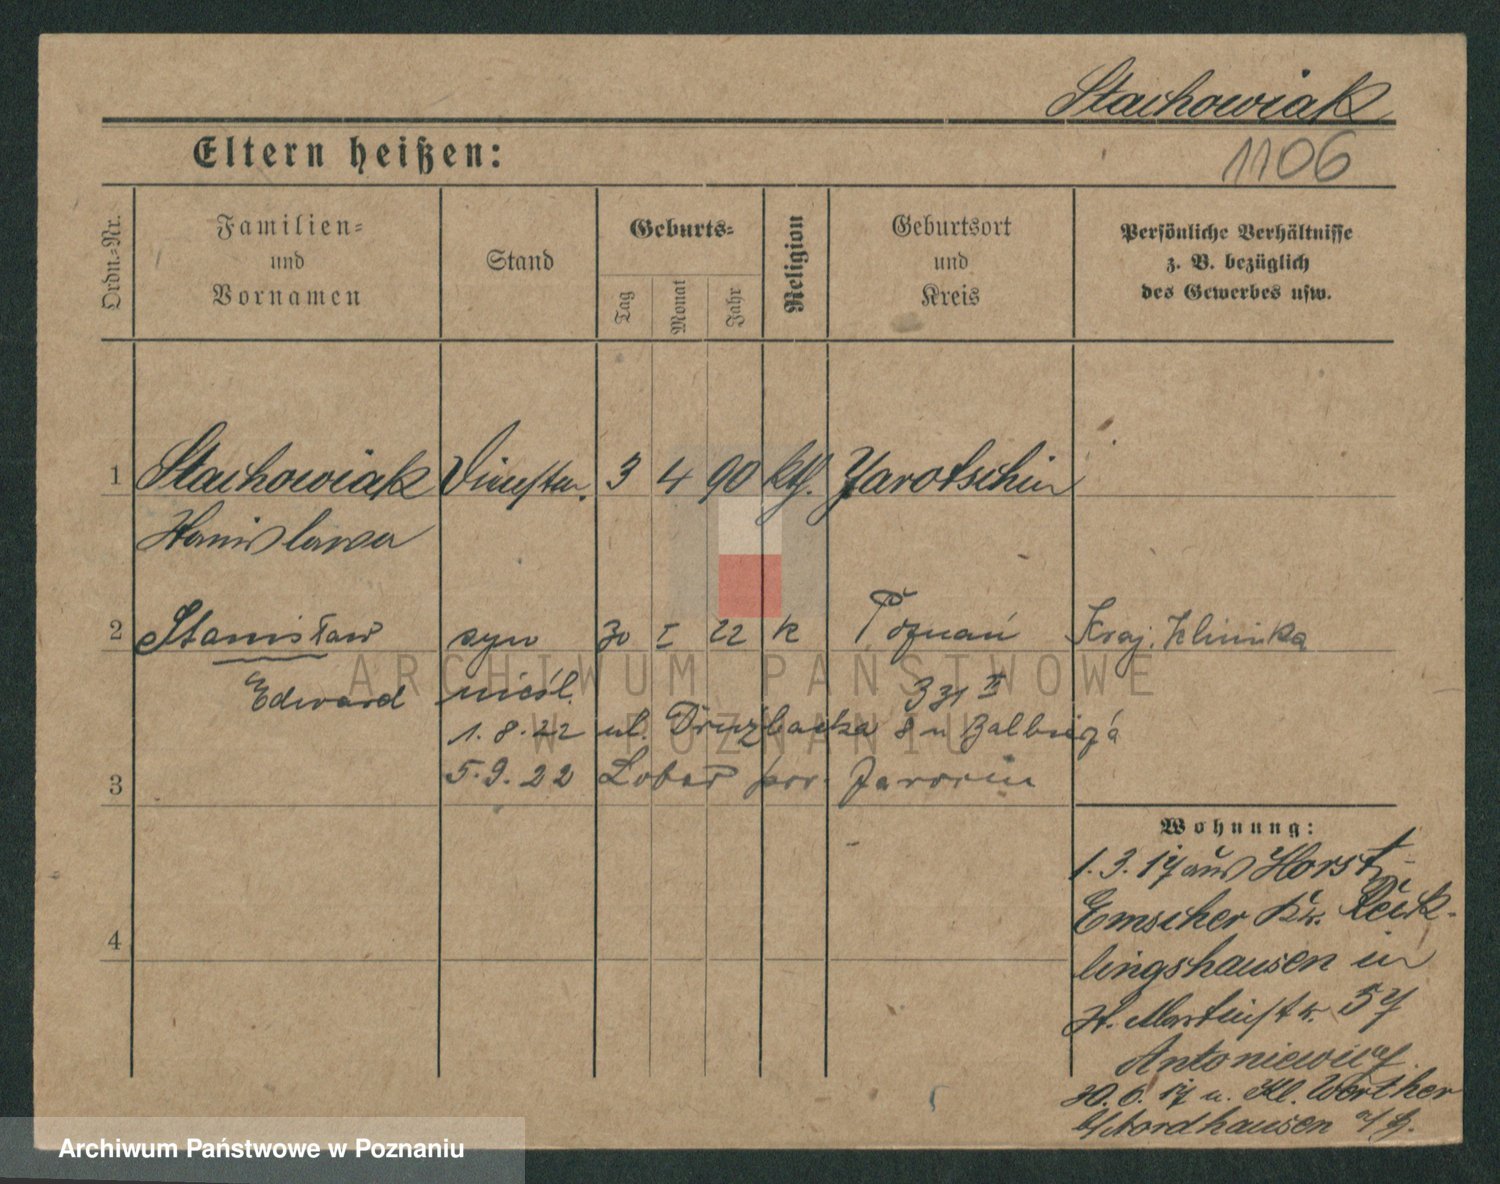 Stachowiak
Eltern heißen:
1106
Ordn.-Nr.
Familien-
und
Vornamen
Stand
Geburts-
Tag
Monat
Jahr
Religion
Geburtsort
und
Kreis
Persönliche Verhältnisse
z. B. bezüglich
des Gewerbes usw.
1 Stachowiak 3 4 90 kth. Jarotschin
Stanislawa
2 Stanisław syn 30 I 22 k Poznań Kraj. Klinika
Edward nieśl.
1.8.22 ul. Drużbacka 8 u
5.9.22 pow. Jarocin
3
Wohnung:
1.3.17 aus Horst-
Emscher Kr. Reck-
lingshausen in
St. Martinstr. 57
Antoniewicz
30.6.17 n. Kl. Werther
b/Nordhausen a/H.
4
ARCHIWUM PAŃSTWOWE
W POZNANIU
Archiwum Państwowe w Poznaniu